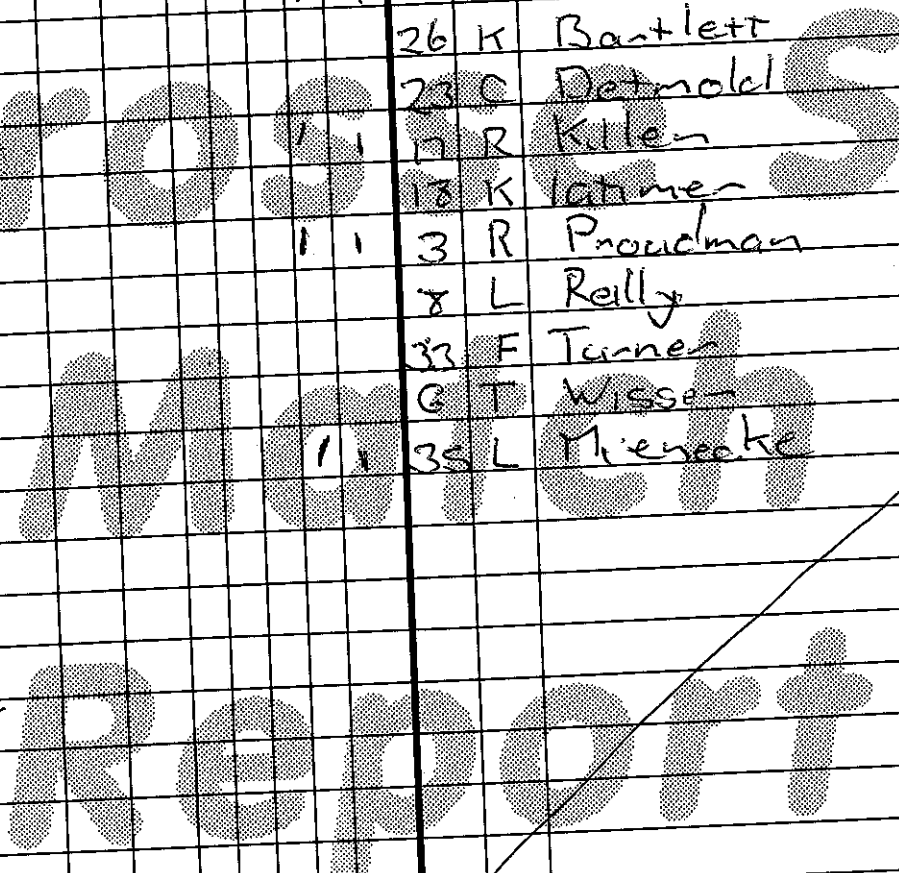 26 K Bartlett
23 C Detmold
1 1 17 R Killen
18 K latimer
1 1 3 R Proudman
8 L Reilly
33 F Turner
G T Wissen
1 1 35 L Mienecke
Match
Report